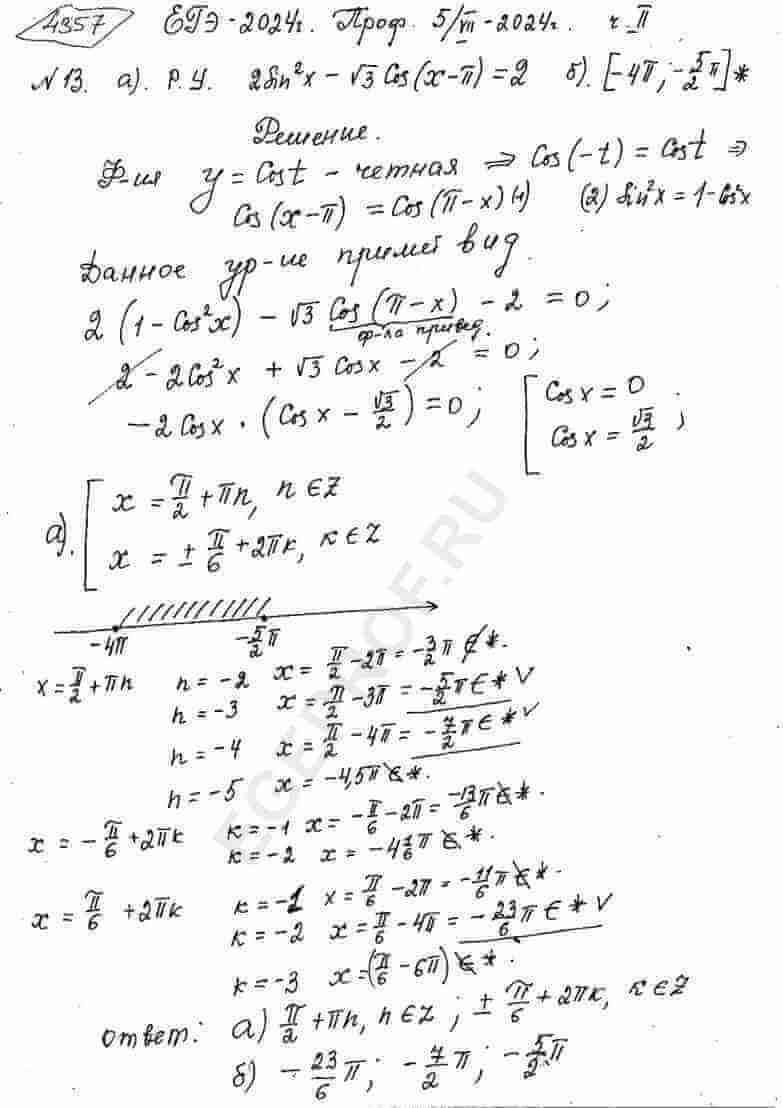 4357 ЕГЭ-2024г. Проф. 5/VII-2024г. ч. II
№13. а). Р.У. 2Sin²x - √3 Cos(x-π) = 2 б). [-4π; -5/2 π] *
Решение.
Ф-ия y = Cos t - четная ⇒ Cos(-t) = Cos t ⇒
Cos(x-π) = Cos(π-x) (1) (2) Sin²x = 1-Cos²x
Данное ур-ие примет вид.
2(1-Cos²x) - √3 Cos(π-x) - 2 = 0;
ф-ла привед.
2 - 2Cos²x + √3 Cosx - 2 = 0;
-2Cosx · (Cosx - √3/2) = 0; [Cosx = 0
Cosx = √3/2;
а). [x = π/2 + πn, n ∈ Z
x = ± π/6 + 2πk, k ∈ Z
-4π -5/2 π
x = π/2 + πn n = -2 x = π/2 - 2π = -3/2 π ∉ *.
n = -3 x = π/2 - 3π = -5/2 π ∈ * V
n = -4 x = π/2 - 4π = -7/2 π ∈ * V
n = -5 x = -4,5π ∉ *.
x = -π/6 + 2πk k = -1 x = -π/6 - 2π = -13/6 π ∉ *.
k = -2 x = -4 1/6 π ∉ *.
x = π/6 + 2πk k = -1 x = π/6 - 2π = -11/6 π ∉ *.
k = -2 x = π/6 - 4π = -23/6 π ∈ * V
k = -3 x = (π/6 - 6π) ∉ *.
ответ: а) π/2 + πn, n ∈ Z; ± π/6 + 2πk, k ∈ Z
б) -23/6 π; -7/2 π; -5/2 π
EGEPROF.RU